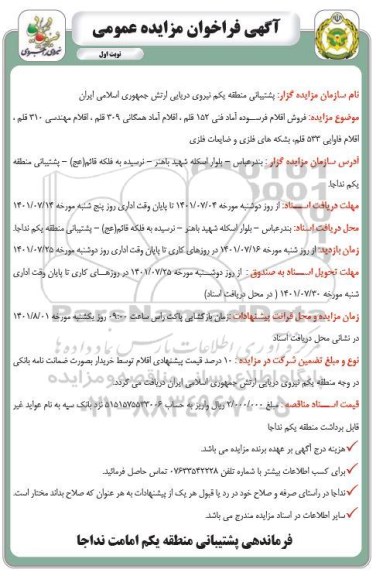 آگهی فراخوان مزایده عمومی
نوبت اول
نام سازمان مزایده گزار: پشتیبانی منطقه یکم نیروی دریایی ارتش جمهوری اسلامی ایران
موضوع مزایده: فروش اقلام فرسوده آماد فنی ۱۵۲ قلم ، اقلام آماد همگانی ۳۰۹ قلم ، اقلام مهندسی ۳۱۰ قلم ،
اقلام فاوایی ۵۳۳ قلم، بشکه های فلزی و ضایعات فلزی
آدرس سازمان مزایده گزار : بندرعباس – بلوار اسکله شهید باهنر – نرسیده به فلکه قائم(عج) – پشتیبانی منطقه
یکم نداجا.
مهلت دریافت اسناد: از روز دوشنبه مورخه ۱۴۰۱/۰۷/۰۴ تا پایان وقت اداری روز پنج شنبه مورخه ۱۴۰۱/۰۷/۱۴
محل دریافت اسناد: بندرعباس – بلوار اسکله شهید باهنر – نرسیده به فلکه قائم(عج) – پشتیبانی منطقه یکم نداجا.
زمان بازدید: از روز شنبه مورخه ۱۴۰۱/۰۷/۱۶ در روزهای کاری تا پایان وقت اداری روز دوشنبه مورخه ۱۴۰۱/۰۷/۲۵
مهلت تحویل اسناد به صندوق : از روز دوشنبه مورخه ۱۴۰۱/۰۷/۲۵ در روزهای کاری تا پایان وقت اداری
شنبه مورخه ۱۴۰۱/۰۷/۳۰ ( در محل دریافت اسناد)
زمان مزایده و محل قرائت پیشنهادات :زمان بازگشایی پاکت راس ساعت ۰۹:۰۰ روز یکشنبه مورخه ۱۴۰۱/۸/۰۱
در نشانی محل دریافت اسناد
نوع و مبلغ تضمین شرکت در مزایده : ۱۰ درصد قیمت پیشنهادی اقلام توسط خریدار بصورت ضمانت نامه بانکی
در وجه منطقه یکم نیروی دریایی ارتش جمهوری اسلامی ایران دریافت می گردد.
قیمت اسناد مناقصه : مبلغ ۲/۰۰۰/۰۰۰ ریال واریز به حساب ۵۱۵۱۵۷۵۵۳۳۰۰۶ نزد بانک سپه به نام عواید غیر
قابل برداشت منطقه یکم نداجا
✓هزینه درج آگهی بر عهده برنده مزایده می باشد.
✓برای کسب اطلاعات بیشتر با شماره تلفن ۰۷۶۳۳۵۴۲۲۲۸ تماس حاصل فرمائید.
✓نداجا در راستای صرفه و صلاح خود در رد یا قبول هر یک از پیشنهادات به هر عنوان که صلاح بداند مختار است.
✓سایر اطلاعات در اسناد مزایده مندرج می باشد.
فرماندهی پشتیبانی منطقه یکم امامت نداجا